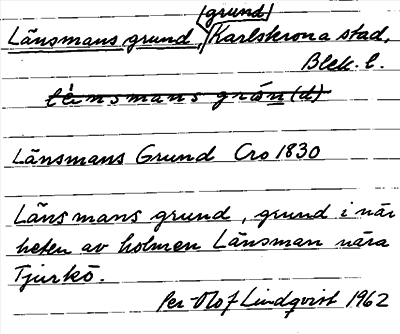 (grund)
Länsmans grund, Karlskrona stad,
Blek. l.
länsmans grön(d)
Länsmans Grund Cro 1830
Länsmans grund, grund i när
heten av holmen Länsman nära
Tjurkö.
Per Olof Lindqvist 1962